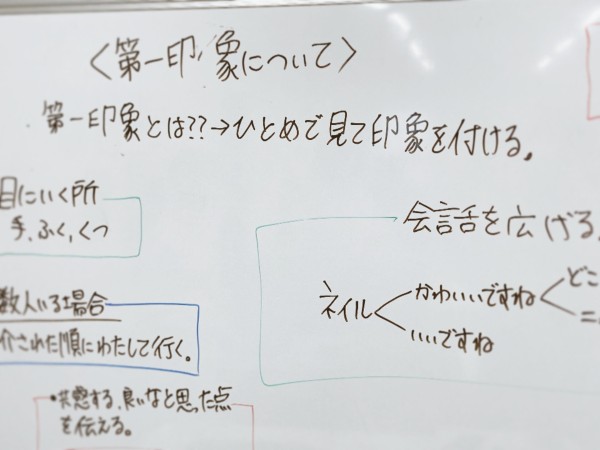 〈第一印象について〉
第一印象とは??→ひとめで見て印象を付ける。
目にいく所
手、ふく、くつ
会話を広げる。
ネイル
かわいいですね
いいですね
どこ
数人いる場合
介された順にわたして行く。
・共感する、良いなと思った点
を伝える。